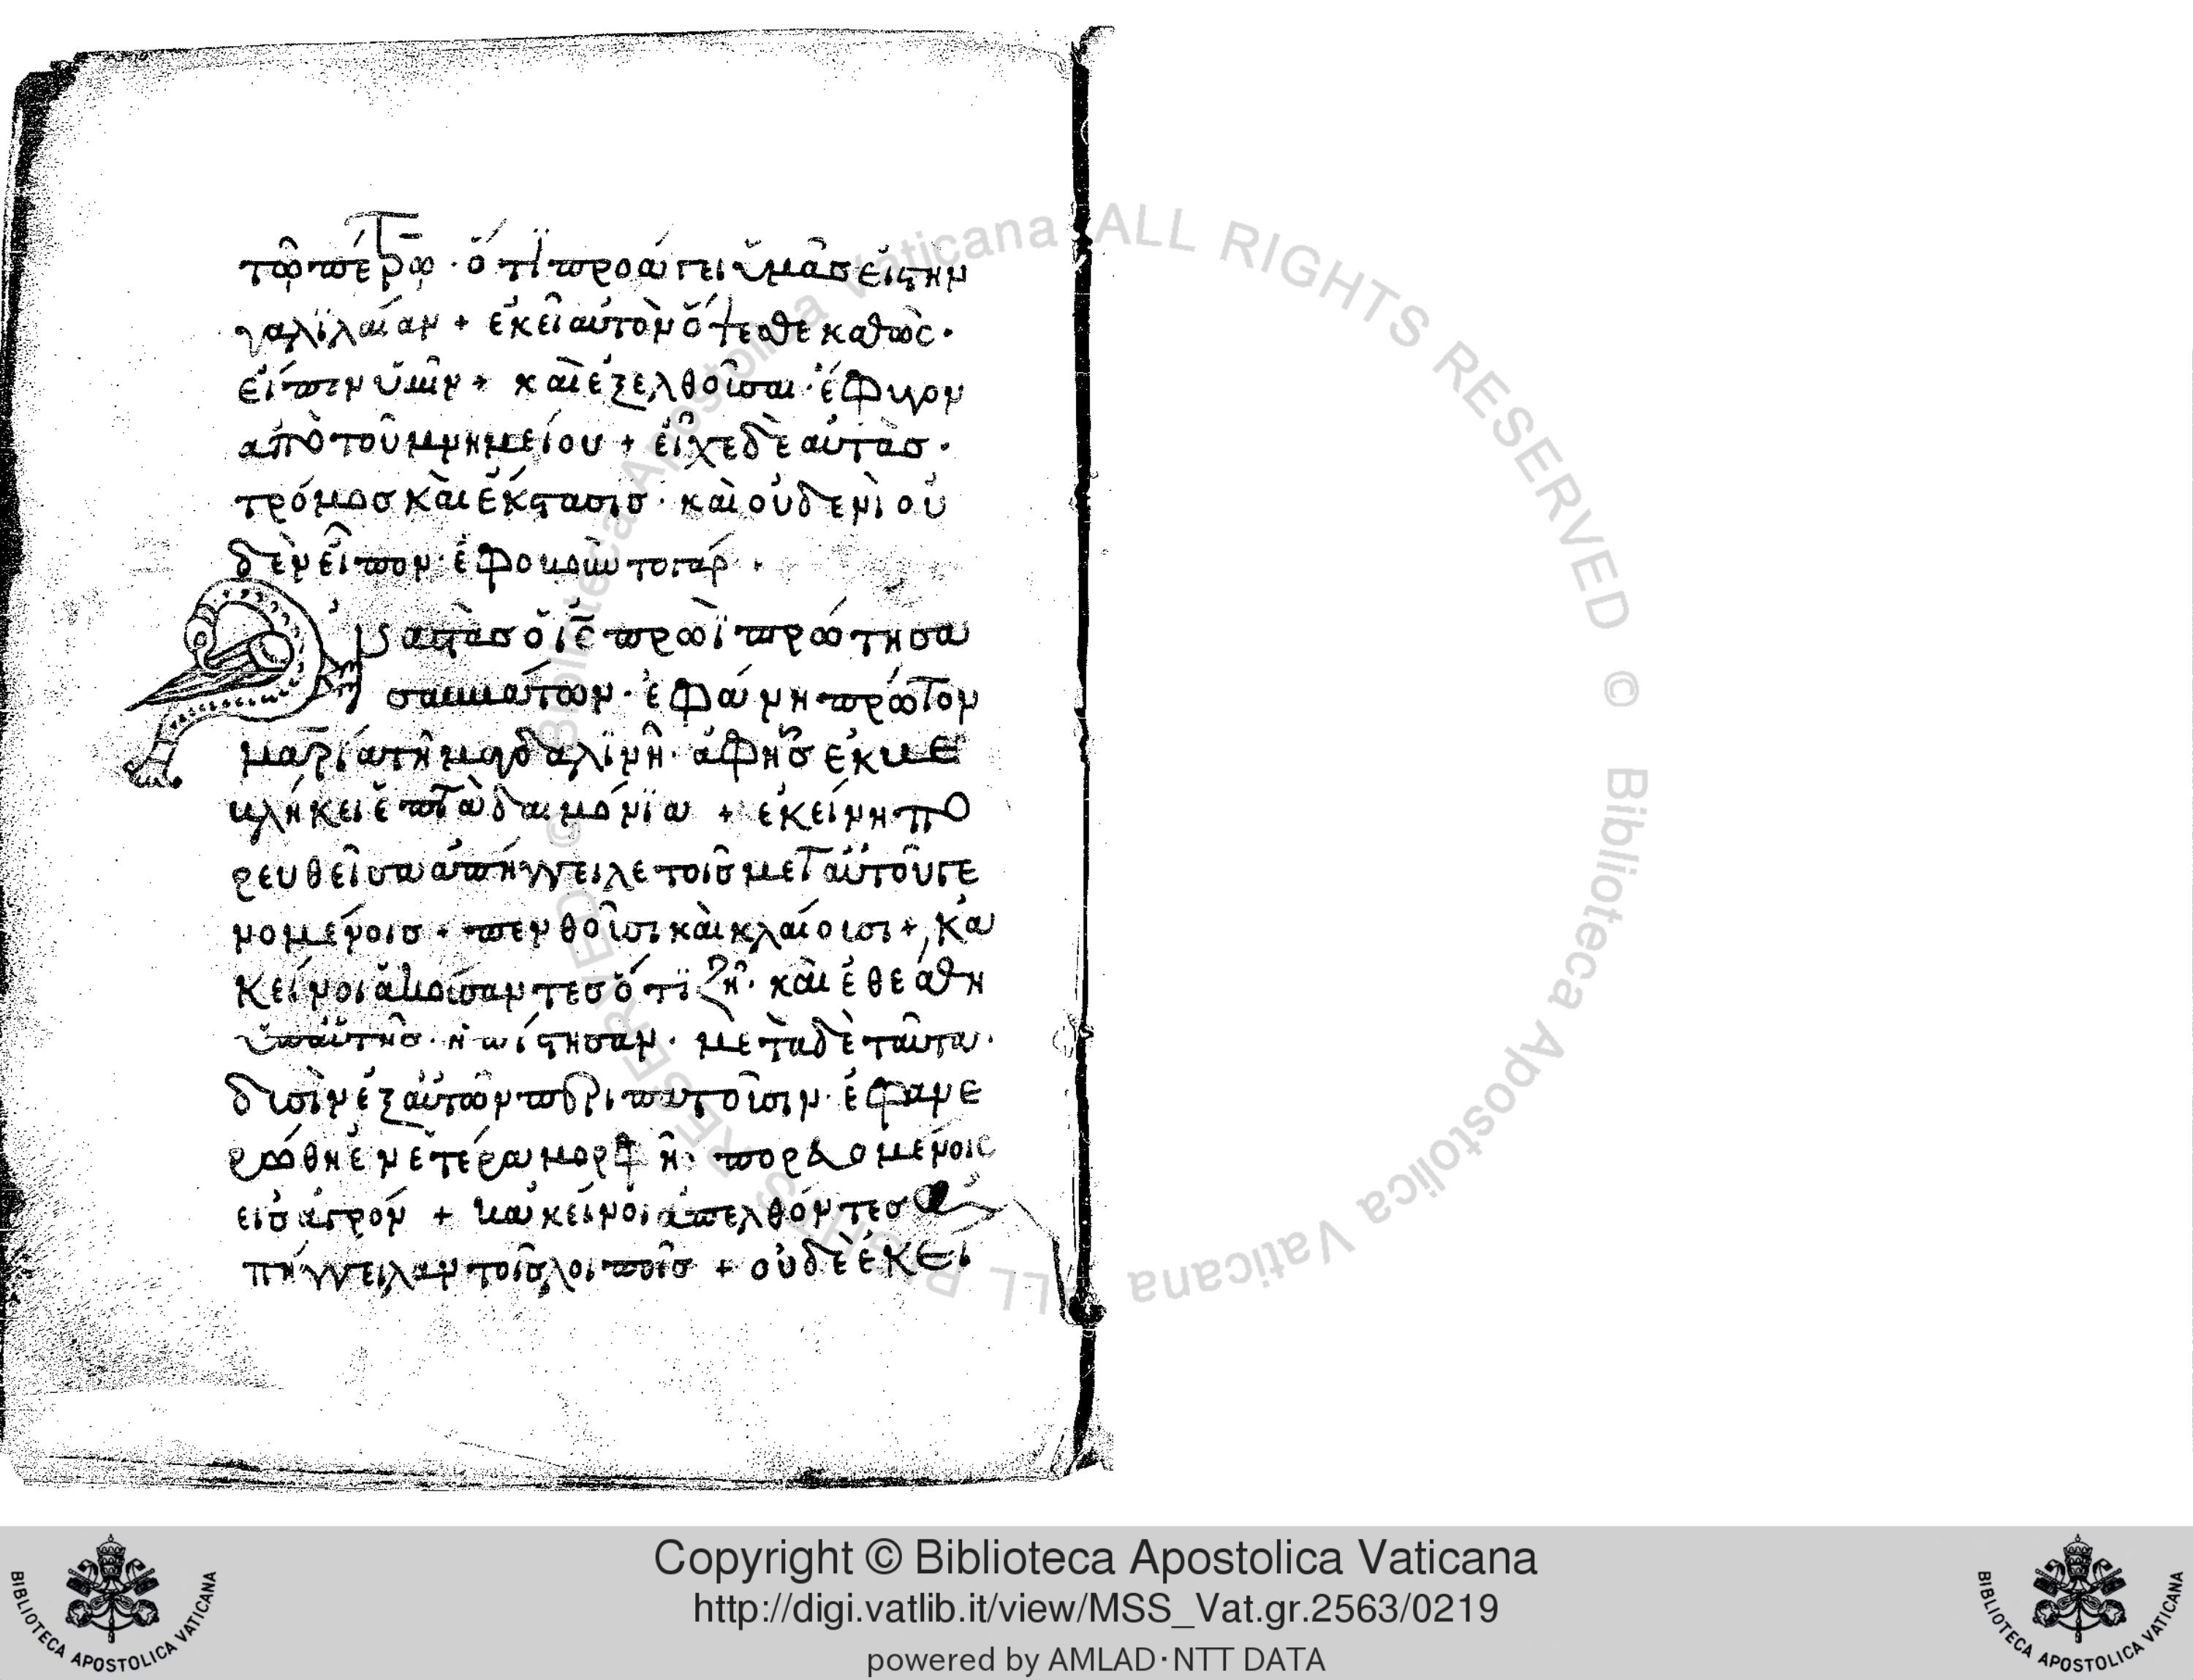 τῶ πέτρω· ὅτι προάγει ὑμᾶς εἰς τὴν
γαλιλαίαν + ἐκεῖ αὐτὸν ὄψεσθε καθὼς·
εἶπεν ὑμῖν + καὶ ἐξελθοῦσαι· ἔφυγον
ἀπὸ τοῦ μνημείου + εἶχε δὲ αὐτὰς·
τρόμος καὶ ἔκστασις· καὶ οὐδενὶ οὐ
δὲν εἶπον· ἐφοβοῦντο γάρ·
Ἀναστὰς ὁ ἰς̅ πρωῒ πρώτη σα
σαββάτων· ἐφάνη πρῶτον
μαρία τῆ μαγδαλινῆ· ἀφ' ἧς ἐκβε
βλήκει ἑπτὰ δαιμόνια + ἐκείνη πο
ρευθεῖσα ἀπήγγειλε τοῖς μετ αὐτοῦ γε
νομένοις + πενθοῦσι καὶ κλαίουσι + κα
κεῖνοι ἀκούσαντες ὅτι ζῆ· καὶ ἐθεάθη
ὑπ αὐτῆς· ἠπίστησαν· μετὰ δὲ ταῦτα·
δυσὶν ἐξ αὐτῶν περιπατοῦσιν· ἐφανε
ρώθη ἐν ἑτέρα μορφῆ· πορευομένοις
εἰς ἀγρόν + κακεῖνοι ἀπελθόντες ἀ
πήγγειλαν τοῖς λοιποῖς + οὐδὲ ἐκεί
Copyright © Biblioteca Apostolica Vaticana
http://digi.vatlib.it/view/MSS_Vat.gr.2563/0219
powered by AMLAD·NTT DATA
BIBLIOTECA APOSTOLICA VATICANA
BIBLIOTECA APOSTOLICA VATICANA
© Biblioteca Apostolica Vaticana ALL RIGHTS RESERVED © Biblioteca Apostolica Vaticana ALL RIGHTS RESERVED